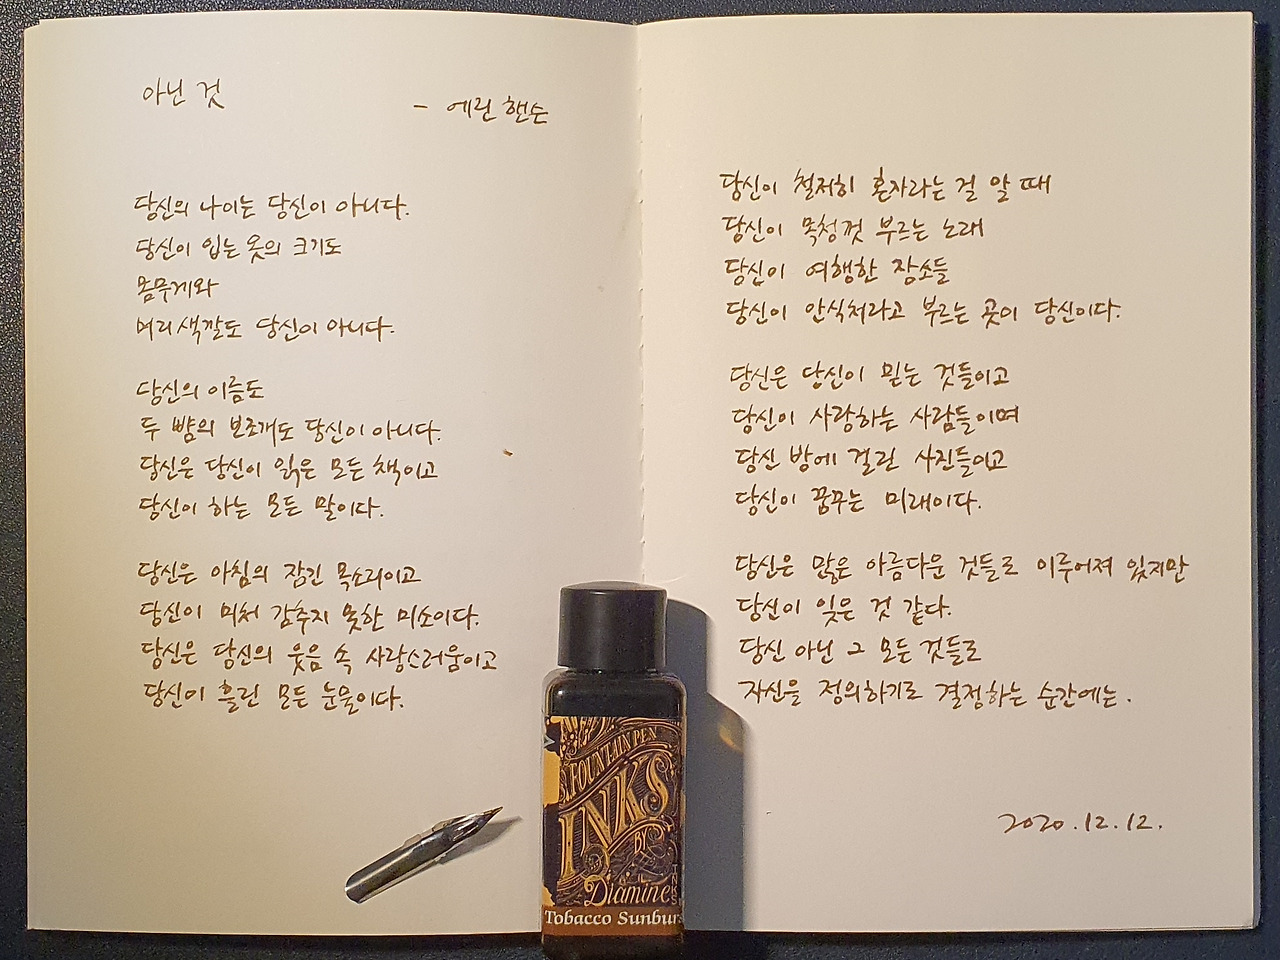 아닌 것
- 에린 핸슨
당신의 나이는 당신이 아니다.
당신이 입는 옷의 크기도
몸무게와
머리 색깔도 당신이 아니다.
당신의 이름도
두 뺨의 보조개도 당신이 아니다.
당신은 당신이 읽은 모든 책이고
당신이 하는 모든 말이다.
당신은 아침의 잠긴 목소리이고
당신이 미처 감추지 못한 미소이다.
당신은 당신의 웃음 속 사랑스러움이고
당신이 흘린 모든 눈물이다.
당신이 철저히 혼자라는 걸 알 때
당신이 목청껏 부르는 노래
당신이 여행한 장소들
당신이 안식처라고 부르는 곳이 당신이다.
당신은 당신이 믿는 것들이고
당신이 사랑하는 사람들이며
당신 방에 걸린 사진들이고
당신이 꿈꾸는 미래이다.
당신은 많은 아름다운 것들로 이루어져 있지만
당신이 잊은 것 같다.
당신 아닌 그 모든 것들로
자신을 정의하기로 결정하는 순간에는.
2020.12.12.
FOUNTAIN PEN
INKS
BY
Diamine
INKS
Tobacco Sunburs